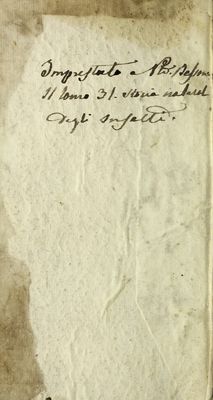 Imprestato a
Il tomo 31. storia natural
degli Insetti.